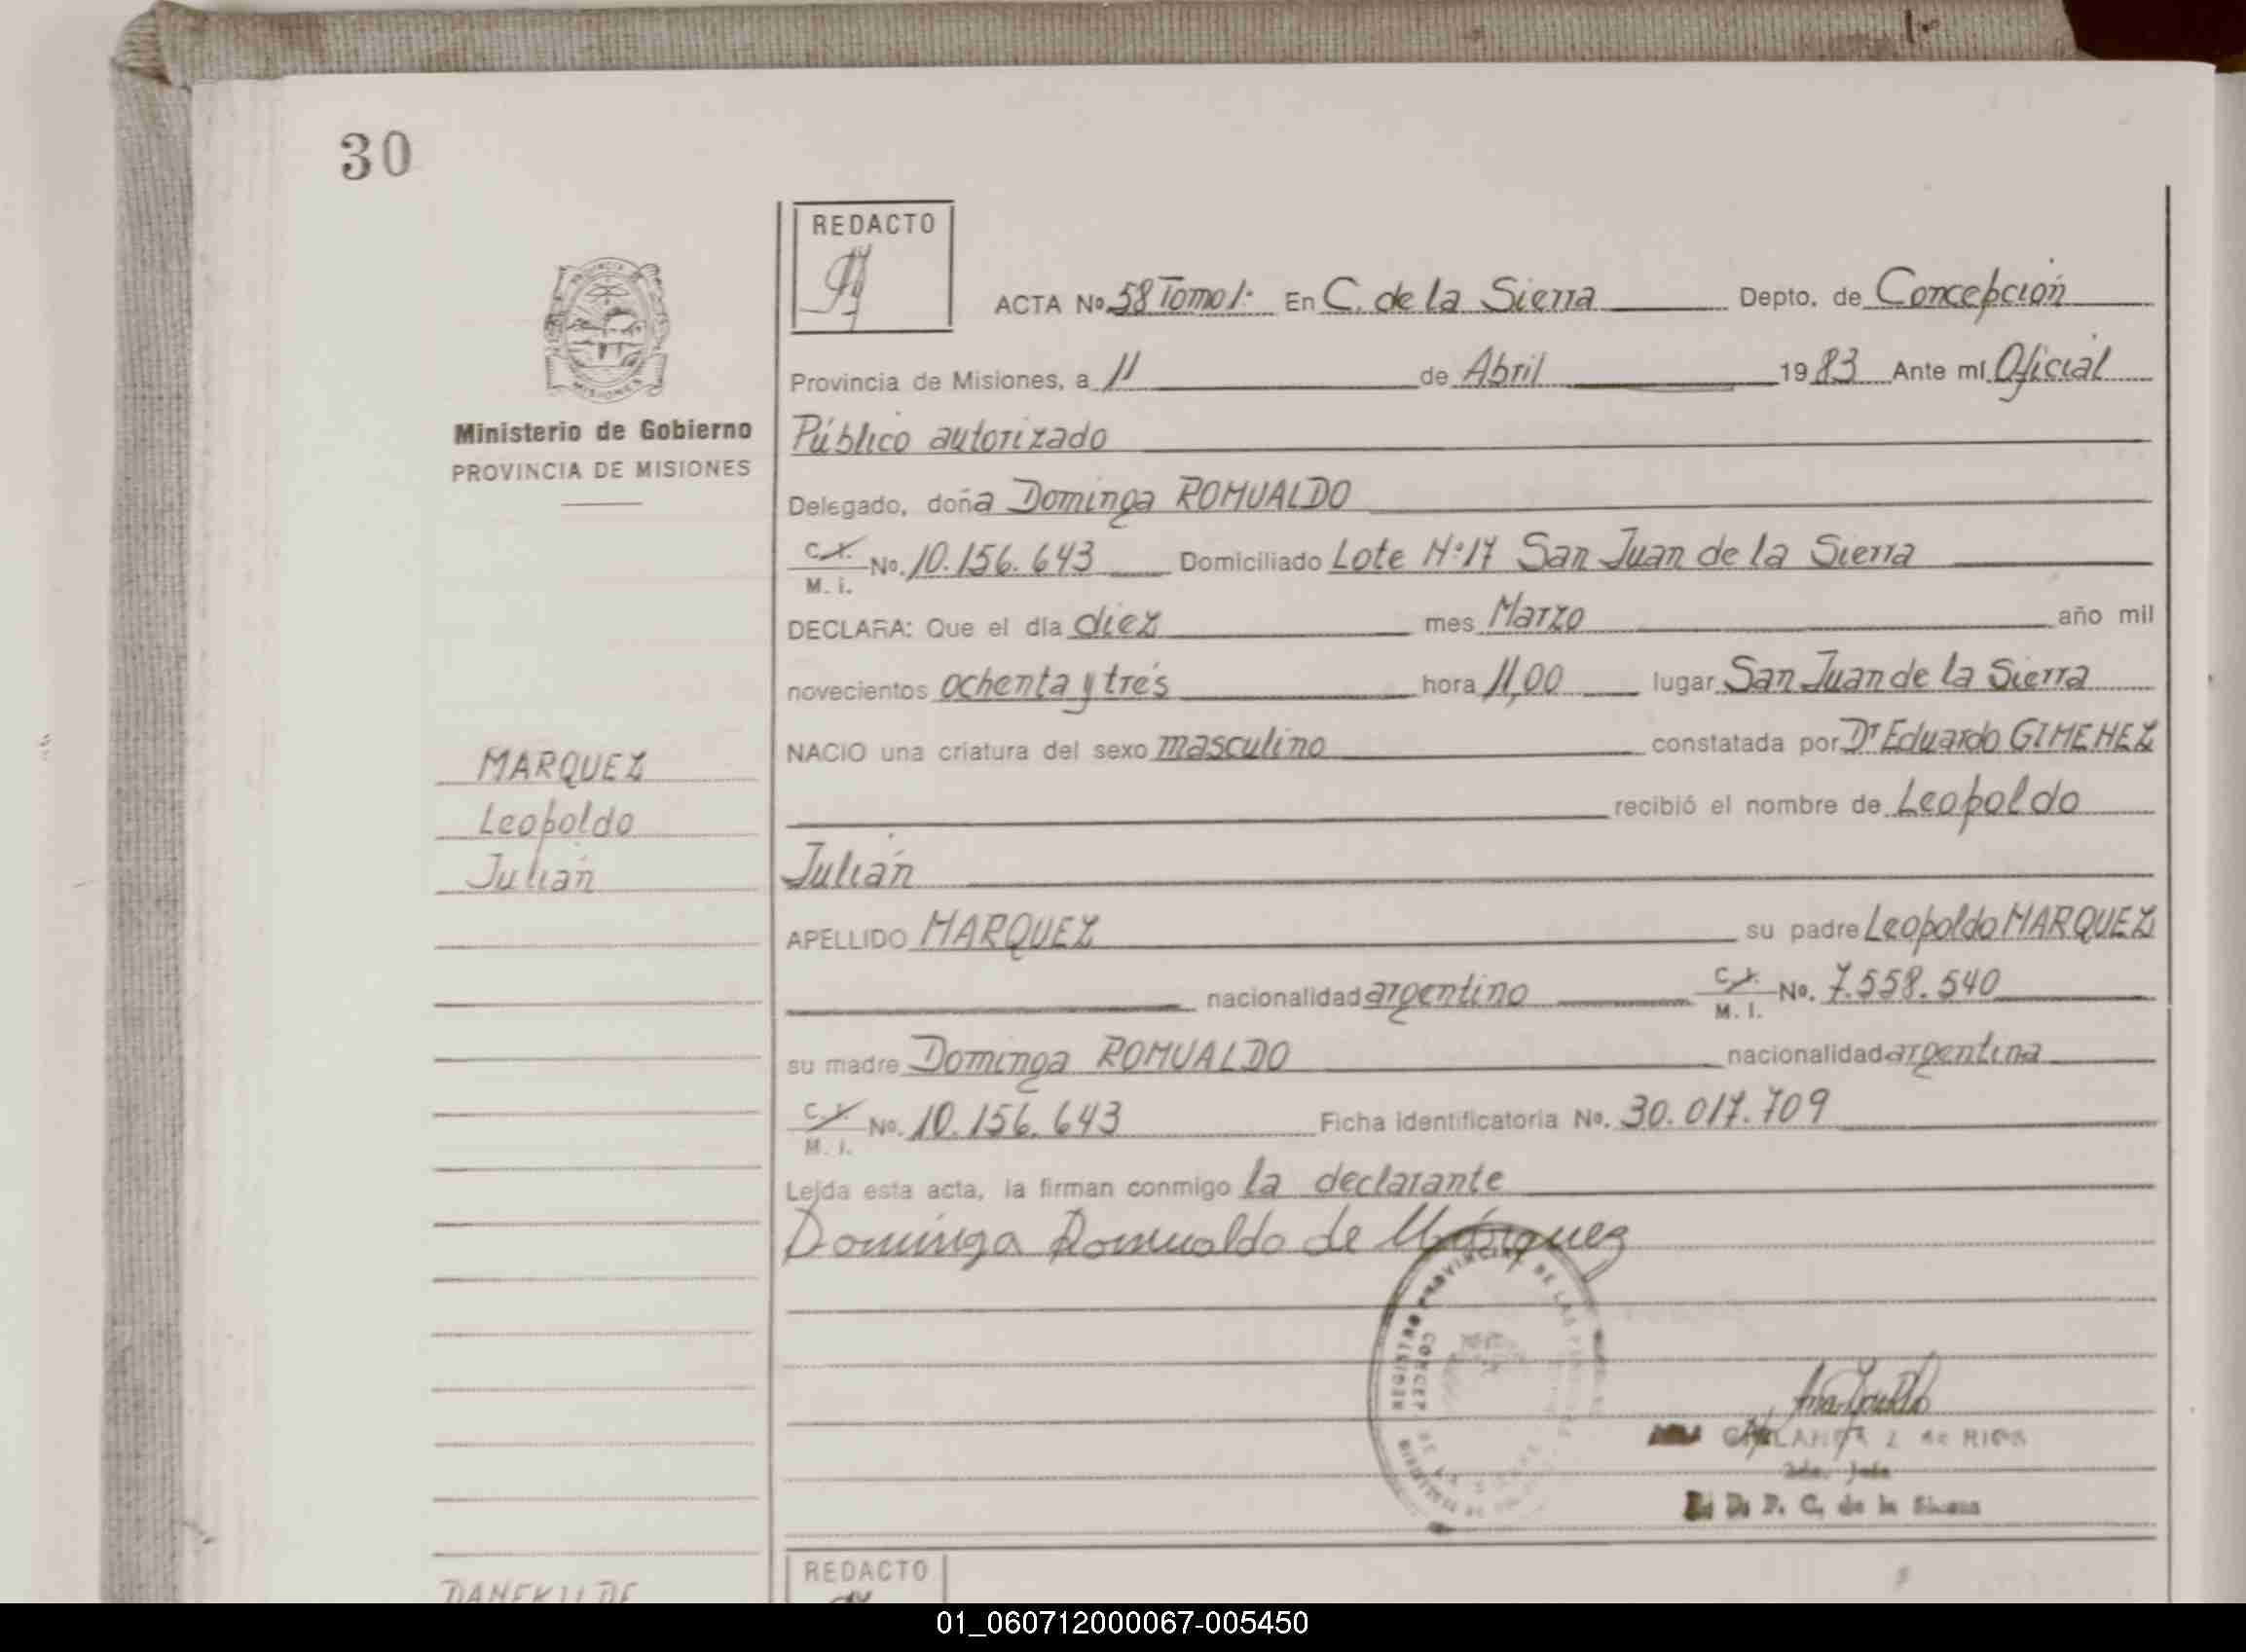 30
REDACTO
ACTA No. 58 Tomo 1º En C. de la Sierra Depto. de Concepción
Provincia de Misiones, a 11 de Abril 1983 Ante mí Oficial
Ministerio de Gobierno
PROVINCIA DE MISIONES
Público autorizado
Delegado, doña Dominga ROMUALDO
C.I. M. I. No. 10.156.643 Domiciliado Lote Nº 17 San Juan de la Sierra
DECLARA: Que el día diez mes Marzo año mil
novecientos ochenta y tres hora 11,00 lugar San Juan de la Sierra
NACIO una criatura del sexo masculino constatada por Dr Eduardo GIMENEZ
recibió el nombre de Leopoldo
Julián
MARQUEZ
Leopoldo
Julián
APELLIDO MARQUEZ su padre Leopoldo MARQUEZ
nacionalidad argentino C.I. M. I. No. 7.558.540
su madre Dominga ROMUALDO nacionalidad argentina
C.I. M. I. No. 10.156.643 Ficha identificatoria No. 30.017.709
Leída esta acta, la firman conmigo la declarante
Dominga Romualdo de Márquez
REGISTRO PROVINCIAL DE LAS
CONCEP. DE LA SIERRA
L. de RIOS
2do. Jefe
R. D. P. C. de la Sierra
REDACTO
01_060712000067-005450